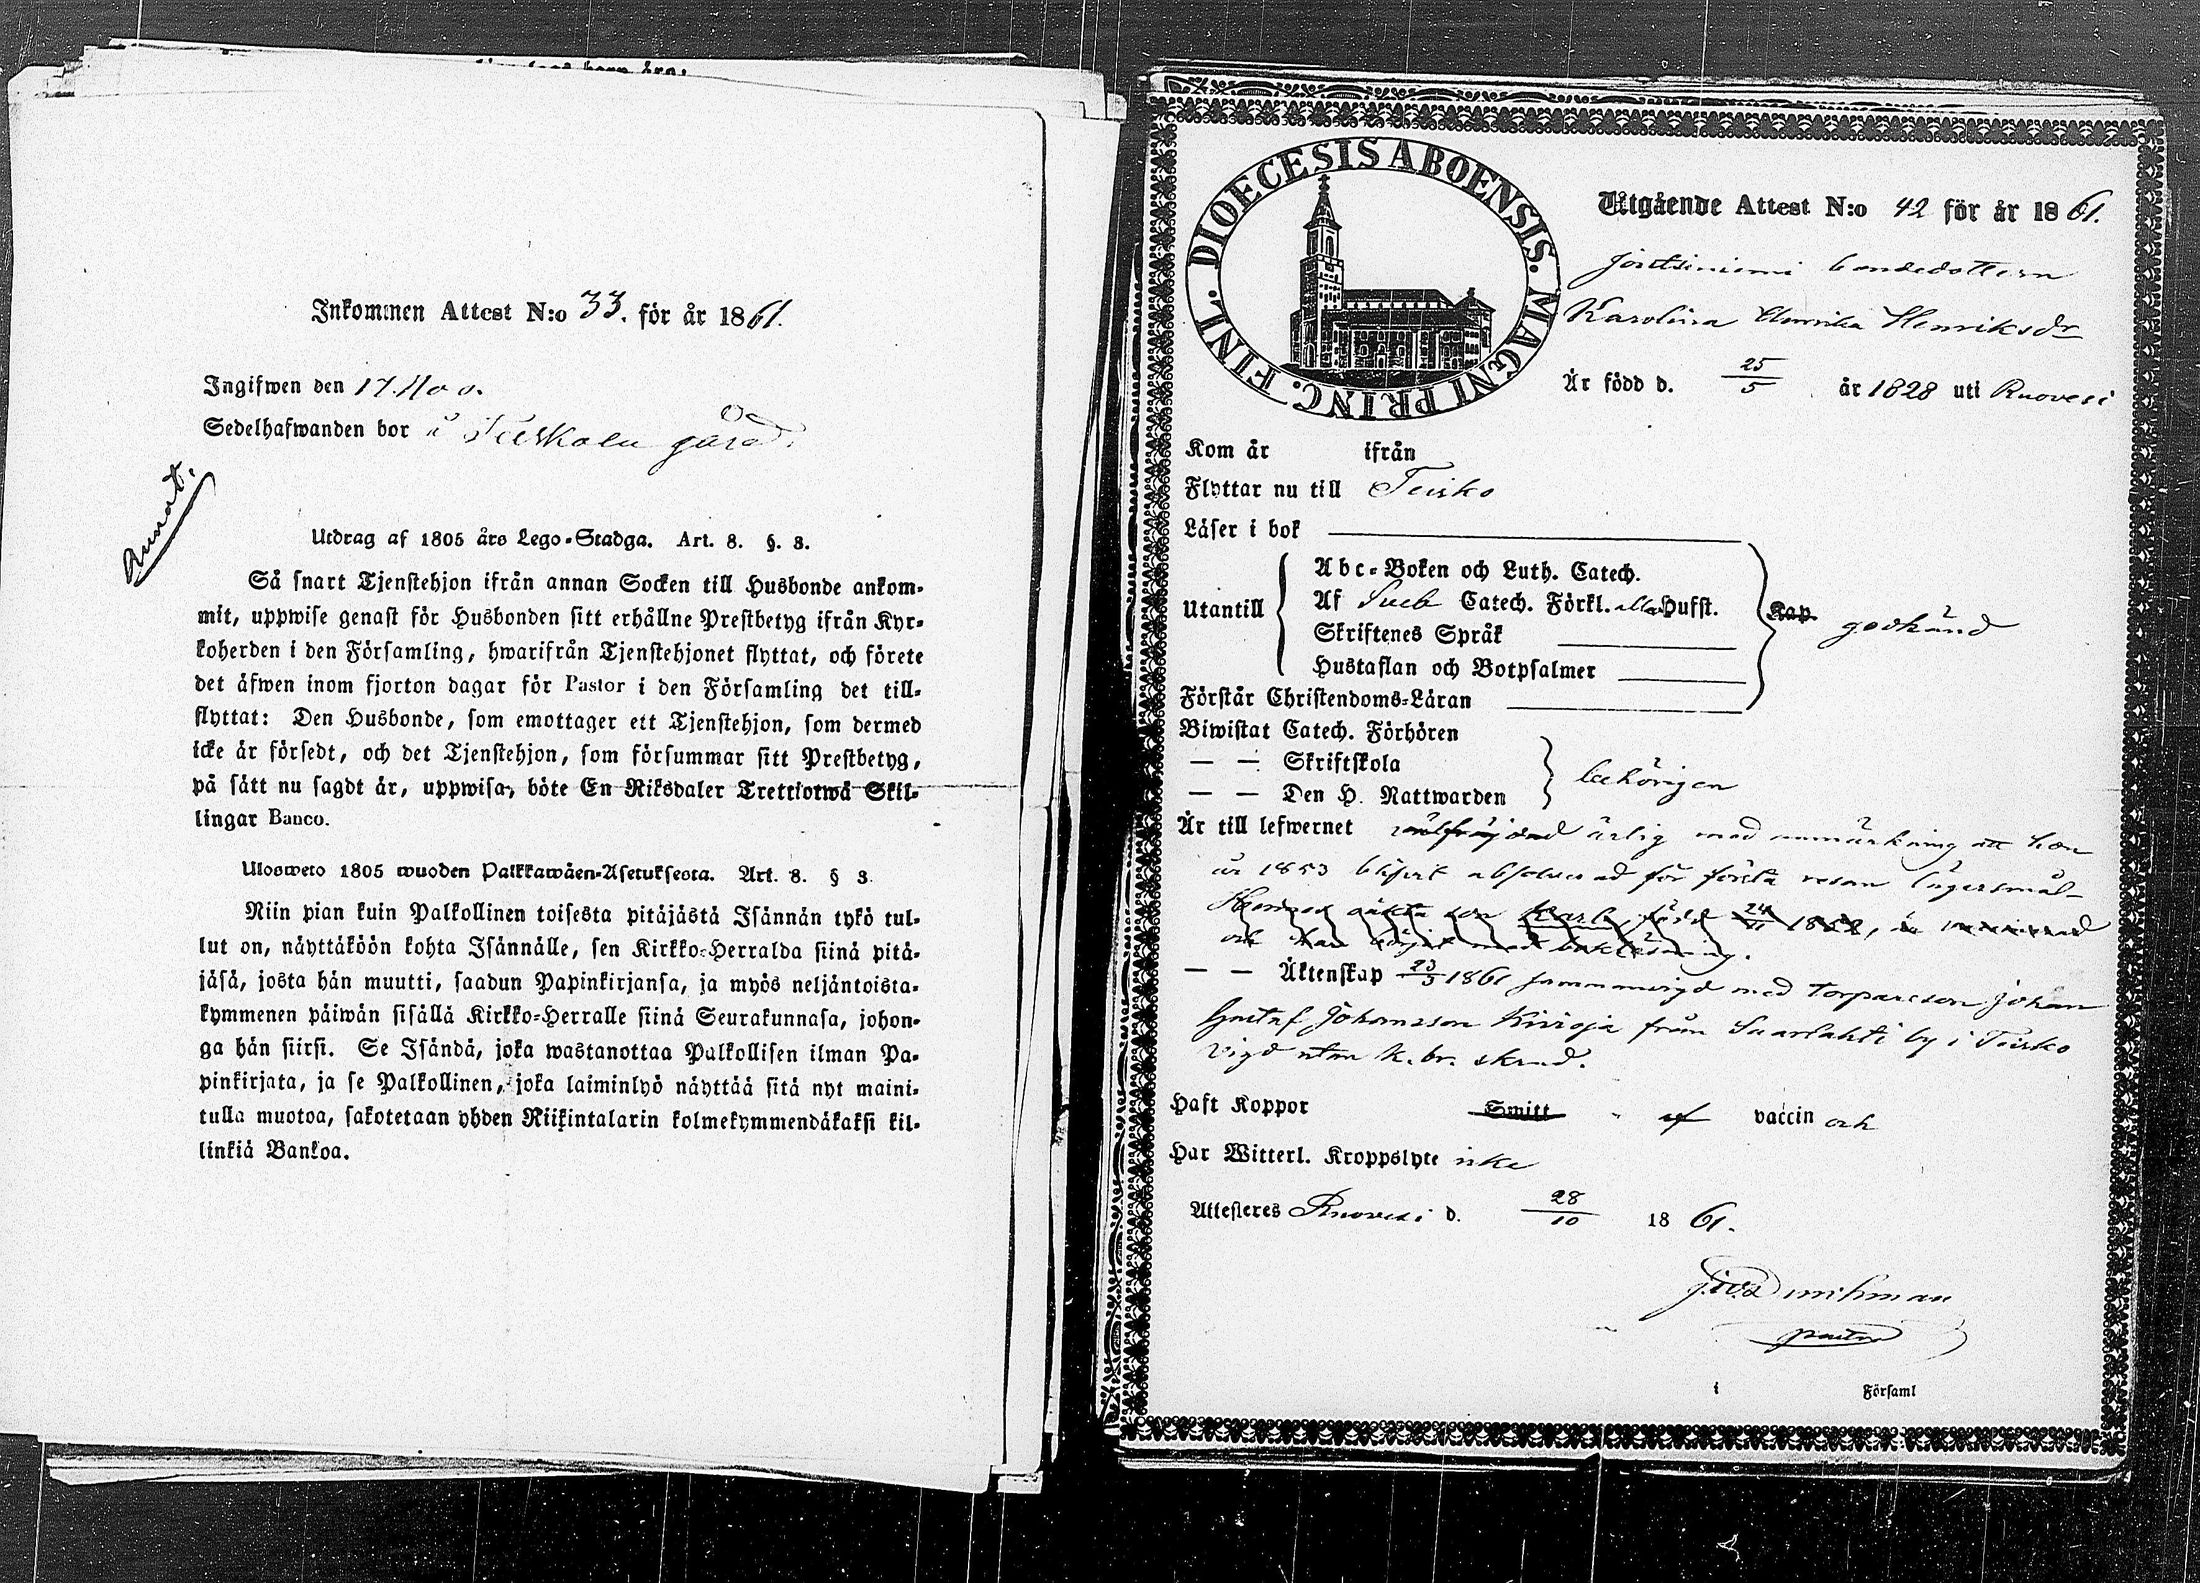 Inkommen Attest N:o 33. för år 1861.
Ingifwen den 17. Nov.
Sedelhafwanden bor å gård.
Annot.
Utdrag af 1805 års Lego-Stadga. Art. 8. §. 8.
Så snart Tjenstehjon ifrån annan Socken till Husbonde ankom-
mit, uppwise genast för Husbonden sitt erhållne Prestbetyg ifrån Kyr-
koherden i den Församling, hwarifrån Tjenstehjonet flyttat, och förete
det äfwen inom fjorton dagar för Pastor i den Församling det till-
flyttat: Den Husbonde, som emottager ett Tjenstehjon, som dermed
icke är försedt, och det Tjenstehjon, som försummar sitt Prestbetyg,
på sätt nu sagdt är, uppwisa, böte En Riksdaler Trettiotwå Skil-
lingar Banco.
Ulosweto 1805 wuoden Palkkawäen-Asetuksesta. Art. 8. § 8.
Niin pian kuin Palkollinen toisesta pitäjästä Isännän tykö tul-
lut on, näyttäköön kohta Isännälle, sen Kirkko-Herralda siinä pitä-
jäsä, josta hän muutti, saadun Papinkirjansa, ja myös neljäntoista-
kymmenen päiwän sisällä Kirkko-Herralle siinä Seurakunnasa, johon-
ga hän siirsi. Se Isändä, joka wastanottaa Palkollisen ilman Pa-
pinkirjata, ja se Palkollinen, joka laiminlyö näyttää sitä nyt maini-
tulla muotoa, sakotetaan yhden Riikintalarin kolmekymmendäkaksi kil-
linkiä Bankoa.
DIOECESIS ABOENSIS. MAGNI PRINC. FINL.
Utgående Attest N:o 42 för år 1861.
bondedottern
Karolina Henrika Henriksdr
Är född d. 25/5 år 1828 uti Ruovesi
Kom år ifrån
Flyttar nu till Teisko
Läser i bok
Utantill
Abc-Boken och Luth. Catech.
Af Sveb Catech. Förkl. alla Hufst.
Skriftenes Språk
Hustaflan och Botpsalmer
Kap. godkänd
Förstår Christendoms-Läran
Biwistat Catech. Förhören
— — Skriftskola
— — Den H. Nattwarden
behörigen
Är till lefwernet wälfräjdad ärlig med anmärkning att hon
år 1853 blifvit absolverad för första resan lägersmål
oäkta son Karl, född
och har börjat med
— — Äktenskap 23/3 1861 sammanvigd med torpareson Johan
Gustaf Johansson Kivioja från Suarlahti by i Teisko
vigd utan k. br. skrud.
Haft Koppor Smitt af vaccin och
Har Witterl. Kroppslyte icke
Attesteres Ruovesi d. 28/10 1861.
pastor
i Församl